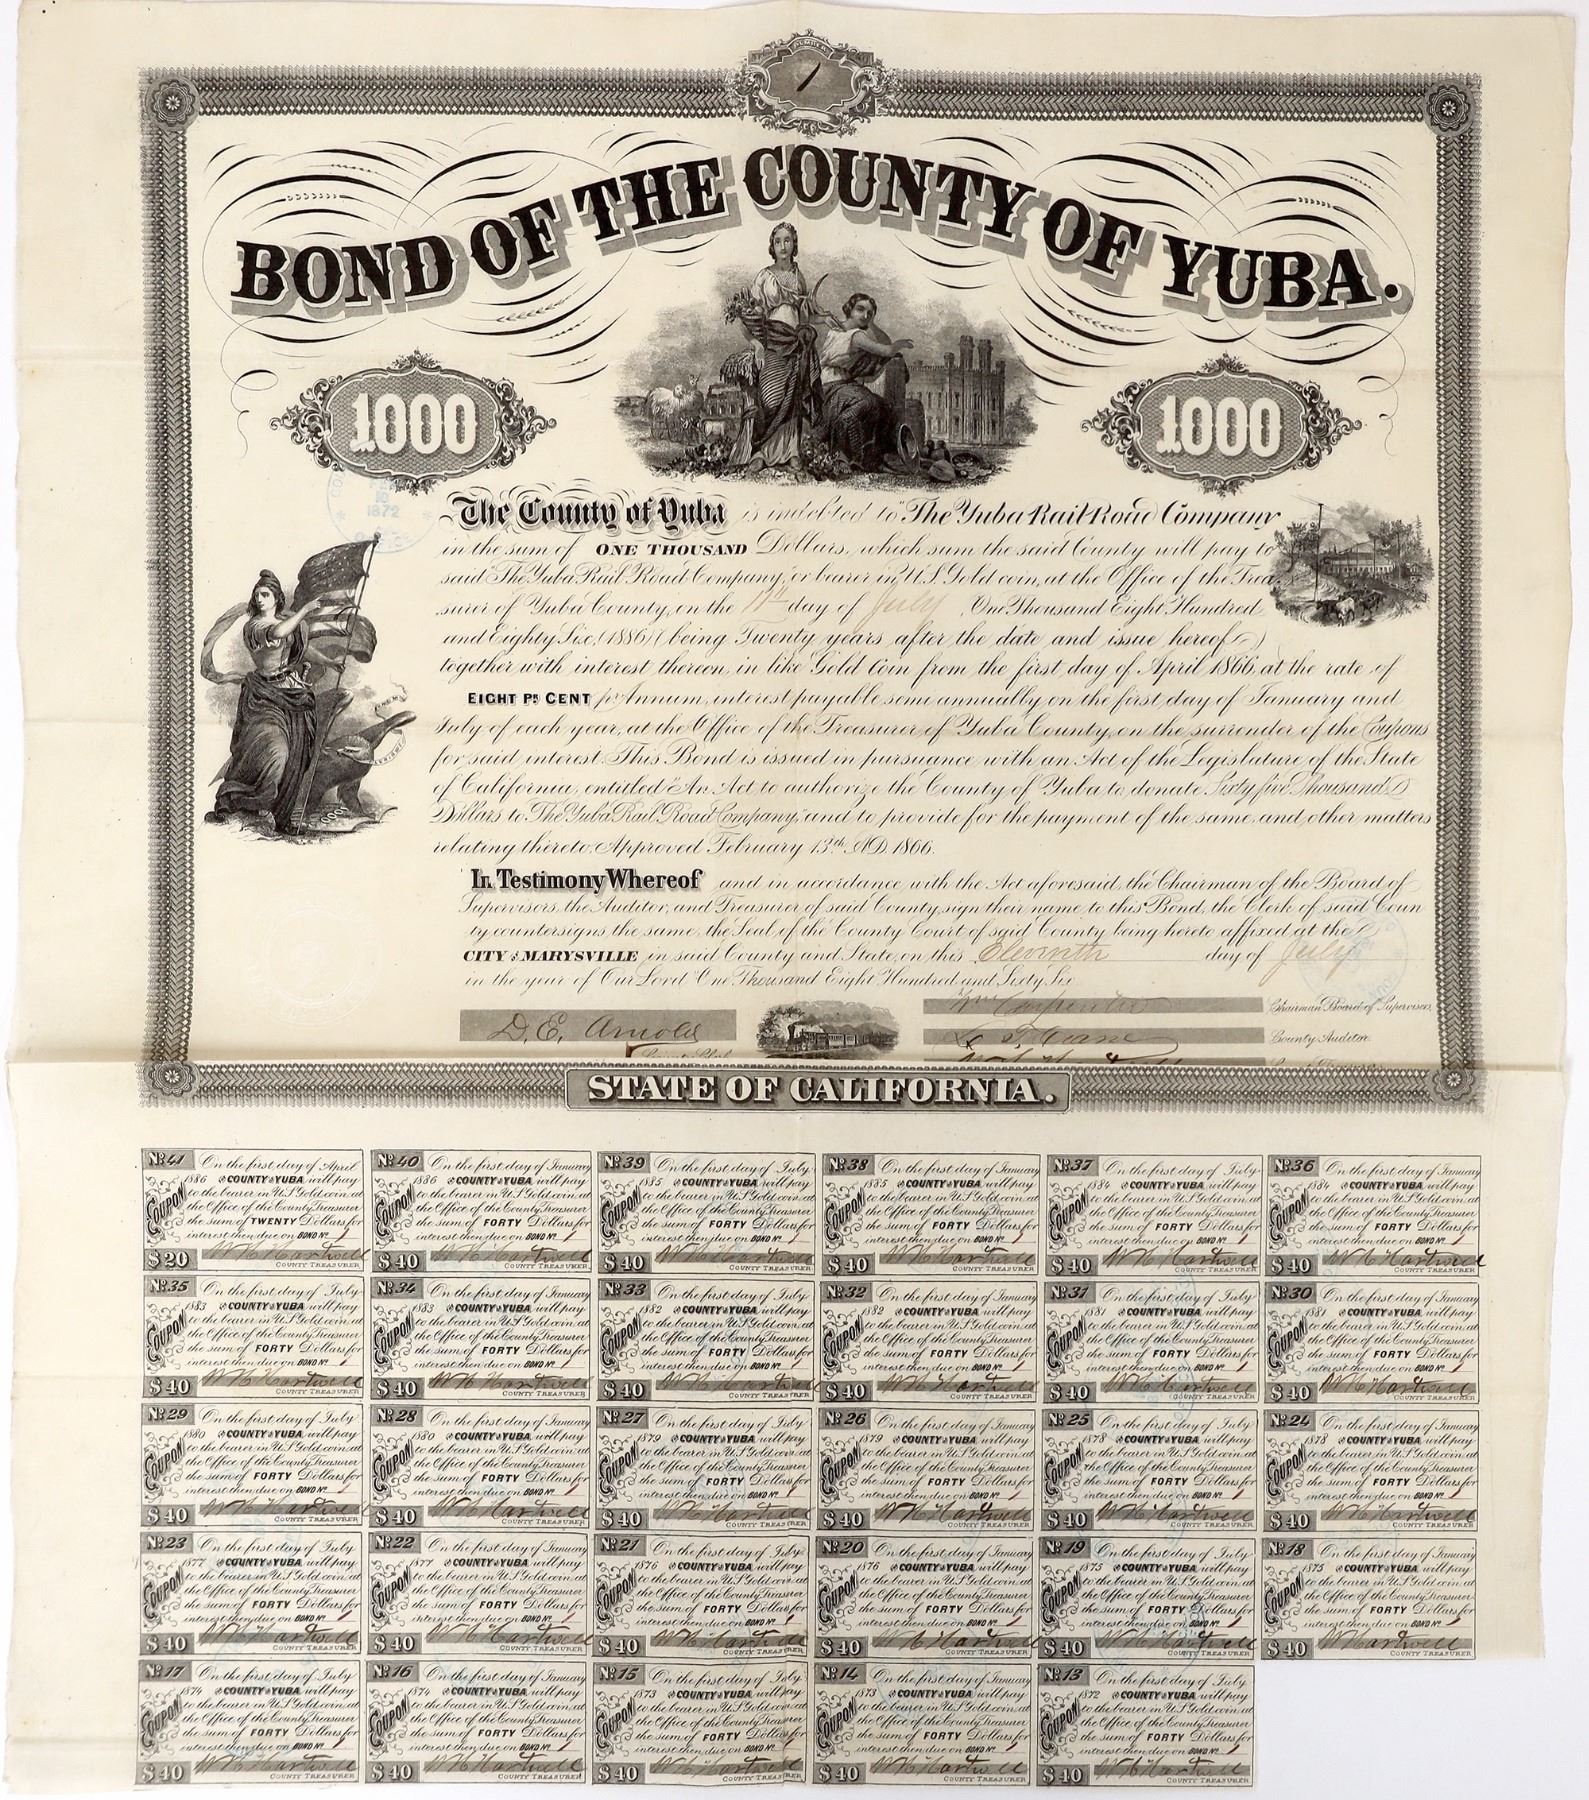 1
BOND OF THE COUNTY OF YUBA.
1000
1000
16
1872
The County of Yuba is indebted to "The Yuba Rail Road Company
in the sum of ONE THOUSAND Dollars, which sum the said County will pay to
said "The Yuba Rail Road Company," or bearer in U.S. Gold coin, at the Office of the Trea-
surer of Yuba County, on the 11th day of July One Thousand Eight Hundred
and Eighty Six, (1886) (being Twenty years after the date and issue hereof)
together with interest thereon, in like Gold Coin from the first day of April 1866, at the rate of
EIGHT Pr CENT pr Annum, interest payable semi annually on the first day of January and
July of each year, at the Office of the Treasurer of Yuba County, on the surrender of the Coupons
for said interest. This Bond is issued in pursuance with an Act of the Legislature of the State
of California, entitled "An Act to authorize the County of Yuba to donate Sixty five Thousand
Dollars to "The Yuba Rail Road Company," and to provide for the payment of the same, and other matters
relating thereto. Approved February 13th AD. 1866.
In Testimony Whereof and in accordance with the Act aforesaid, the Chairman of the Board of
Supervisors, the Auditor, and Treasurer of said County, sign their name to this Bond, the Clerk of said Coun
ty countersigns the same, the Seal of the County Court of said County being hereto affixed at the
CITY of MARYSVILLE in said County and State, on this Eleventh day of July
in the year of Our Lord One Thousand Eight Hundred and Sixty Six
Wm Carpenter Chairman Board of Supervisors,
D. E. Arnold
County Auditor
STATE OF CALIFORNIA.
No 41 On the first day of April
1886 COUNTY of YUBA will pay
to the bearer in U.S Gold coin, at
the Office of the County Treasurer
the sum of TWENTY Dollars for
interest then due on BOND No 1
COUPON
$20 W H Hartwell
COUNTY TREASURER
No 40 On the first day of January
1886 COUNTY of YUBA will pay
to the bearer in U.S Gold coin, at
the Office of the County Treasurer
the sum of FORTY Dollars for
interest then due on BOND No 1
COUPON
$40 W H Hartwell
COUNTY TREASURER
No 39 On the first day of July
1885 COUNTY of YUBA will pay
to the bearer in U.S Gold coin, at
the Office of the County Treasurer
the sum of FORTY Dollars for
interest then due on BOND No 1
COUPON
$40 W H Hartwell
COUNTY TREASURER
No 38 On the first day of January
1885 COUNTY of YUBA will pay
to the bearer in U.S Gold coin, at
the Office of the County Treasurer
the sum of FORTY Dollars for
interest then due on BOND No 1
COUPON
$40 W H Hartwell
COUNTY TREASURER
No 37 On the first day of July
1884 COUNTY of YUBA will pay
to the bearer in U.S Gold coin, at
the Office of the County Treasurer
the sum of FORTY Dollars for
interest then due on BOND No 1
COUPON
$40 W H Hartwell
COUNTY TREASURER
No 36 On the first day of January
1884 COUNTY of YUBA will pay
to the bearer in U.S Gold coin, at
the Office of the County Treasurer
the sum of FORTY Dollars for
interest then due on BOND No 1
COUPON
$40 W H Hartwell
COUNTY TREASURER
No 35 On the first day of July
1883 COUNTY of YUBA will pay
to the bearer in U.S Gold coin, at
the Office of the County Treasurer
the sum of FORTY Dollars for
interest then due on BOND No 1
COUPON
$40 W H Hartwell
COUNTY TREASURER
No 34 On the first day of January
1883 COUNTY of YUBA will pay
to the bearer in U.S Gold coin, at
the Office of the County Treasurer
the sum of FORTY Dollars for
interest then due on BOND No 1
COUPON
$40 W H Hartwell
COUNTY TREASURER
No 33 On the first day of July
1882 COUNTY of YUBA will pay
to the bearer in U.S Gold coin, at
the Office of the County Treasurer
the sum of FORTY Dollars for
interest then due on BOND No 1
COUPON
$40 W H Hartwell
COUNTY TREASURER
No 32 On the first day of January
1882 COUNTY of YUBA will pay
to the bearer in U.S Gold coin, at
the Office of the County Treasurer
the sum of FORTY Dollars for
interest then due on BOND No 1
COUPON
$40 W H Hartwell
COUNTY TREASURER
No 31 On the first day of July
1881 COUNTY of YUBA will pay
to the bearer in U.S Gold coin, at
the Office of the County Treasurer
the sum of FORTY Dollars for
interest then due on BOND No 1
COUPON
$40 W H Hartwell
COUNTY TREASURER
No 30 On the first day of January
1881 COUNTY of YUBA will pay
to the bearer in U.S Gold coin, at
the Office of the County Treasurer
the sum of FORTY Dollars for
interest then due on BOND No 1
COUPON
$40 W H Hartwell
COUNTY TREASURER
No 29 On the first day of July
1880 COUNTY of YUBA will pay
to the bearer in U.S Gold coin, at
the Office of the County Treasurer
the sum of FORTY Dollars for
interest then due on BOND No 1
COUPON
$40 W H Hartwell
COUNTY TREASURER
No 28 On the first day of January
1880 COUNTY of YUBA will pay
to the bearer in U.S Gold coin, at
the Office of the County Treasurer
the sum of FORTY Dollars for
interest then due on BOND No 1
COUPON
$40 W H Hartwell
COUNTY TREASURER
No 27 On the first day of July
1879 COUNTY of YUBA will pay
to the bearer in U.S Gold coin, at
the Office of the County Treasurer
the sum of FORTY Dollars for
interest then due on BOND No 1
COUPON
$40 W H Hartwell
COUNTY TREASURER
No 26 On the first day of January
1879 COUNTY of YUBA will pay
to the bearer in U.S Gold coin, at
the Office of the County Treasurer
the sum of FORTY Dollars for
interest then due on BOND No 1
COUPON
$40 W H Hartwell
COUNTY TREASURER
No 25 On the first day of July
1878 COUNTY of YUBA will pay
to the bearer in U.S Gold coin, at
the Office of the County Treasurer
the sum of FORTY Dollars for
interest then due on BOND No 1
COUPON
$40 W H Hartwell
COUNTY TREASURER
No 24 On the first day of January
1878 COUNTY of YUBA will pay
to the bearer in U.S Gold coin, at
the Office of the County Treasurer
the sum of FORTY Dollars for
interest then due on BOND No 1
COUPON
$40 W H Hartwell
COUNTY TREASURER
No 23 On the first day of July
1877 COUNTY of YUBA will pay
to the bearer in U.S Gold coin, at
the Office of the County Treasurer
the sum of FORTY Dollars for
interest then due on BOND No 1
COUPON
$40 W H Hartwell
COUNTY TREASURER
No 22 On the first day of January
1877 COUNTY of YUBA will pay
to the bearer in U.S Gold coin, at
the Office of the County Treasurer
the sum of FORTY Dollars for
interest then due on BOND No 1
COUPON
$40 W H Hartwell
COUNTY TREASURER
No 21 On the first day of July
1876 COUNTY of YUBA will pay
to the bearer in U.S Gold coin, at
the Office of the County Treasurer
the sum of FORTY Dollars for
interest then due on BOND No 1
COUPON
$40 W H Hartwell
COUNTY TREASURER
No 20 On the first day of January
1876 COUNTY of YUBA will pay
to the bearer in U.S Gold coin, at
the Office of the County Treasurer
the sum of FORTY Dollars for
interest then due on BOND No 1
COUPON
$40 W H Hartwell
COUNTY TREASURER
No 19 On the first day of July
1875 COUNTY of YUBA will pay
to the bearer in U.S Gold coin, at
the Office of the County Treasurer
the sum of FORTY Dollars for
interest then due on BOND No 1
COUPON
$40 W H Hartwell
COUNTY TREASURER
No 18 On the first day of January
1875 COUNTY of YUBA will pay
to the bearer in U.S Gold coin, at
the Office of the County Treasurer
the sum of FORTY Dollars for
interest then due on BOND No 1
COUPON
$40 W H Hartwell
COUNTY TREASURER
No 17 On the first day of July
1874 COUNTY of YUBA will pay
to the bearer in U.S Gold coin, at
the Office of the County Treasurer
the sum of FORTY Dollars for
interest then due on BOND No 1
COUPON
$40 W H Hartwell
COUNTY TREASURER
No 16 On the first day of January
1874 COUNTY of YUBA will pay
to the bearer in U.S Gold coin, at
the Office of the County Treasurer
the sum of FORTY Dollars for
interest then due on BOND No 1
COUPON
$40 W H Hartwell
COUNTY TREASURER
No 15 On the first day of July
1873 COUNTY of YUBA will pay
to the bearer in U.S Gold coin, at
the Office of the County Treasurer
the sum of FORTY Dollars for
interest then due on BOND No 1
COUPON
$40 W H Hartwell
COUNTY TREASURER
No 14 On the first day of January
1873 COUNTY of YUBA will pay
to the bearer in U.S Gold coin, at
the Office of the County Treasurer
the sum of FORTY Dollars for
interest then due on BOND No 1
COUPON
$40 W H Hartwell
COUNTY TREASURER
No 13 On the first day of July
1872 COUNTY of YUBA will pay
to the bearer in U.S Gold coin, at
the Office of the County Treasurer
the sum of FORTY Dollars for
interest then due on BOND No 1
COUPON
$40 W H Hartwell
COUNTY TREASURER